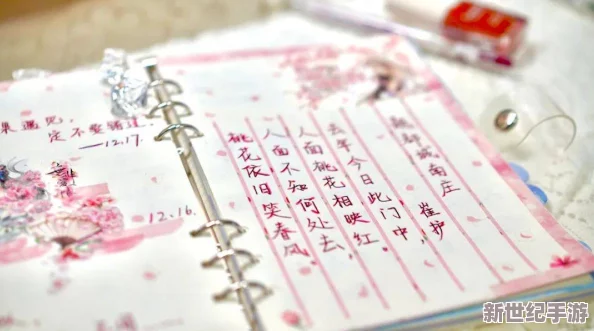 果遇见,
定不要错过.
——12.17.
12.16.
题都城南庄
崔护
去年今日此门中,
人面桃花相映红.
人面不知何处去,
桃花依旧笑春风.
新世纪手游